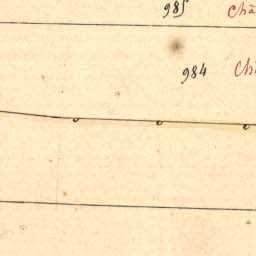 985 Châ
984 Ch